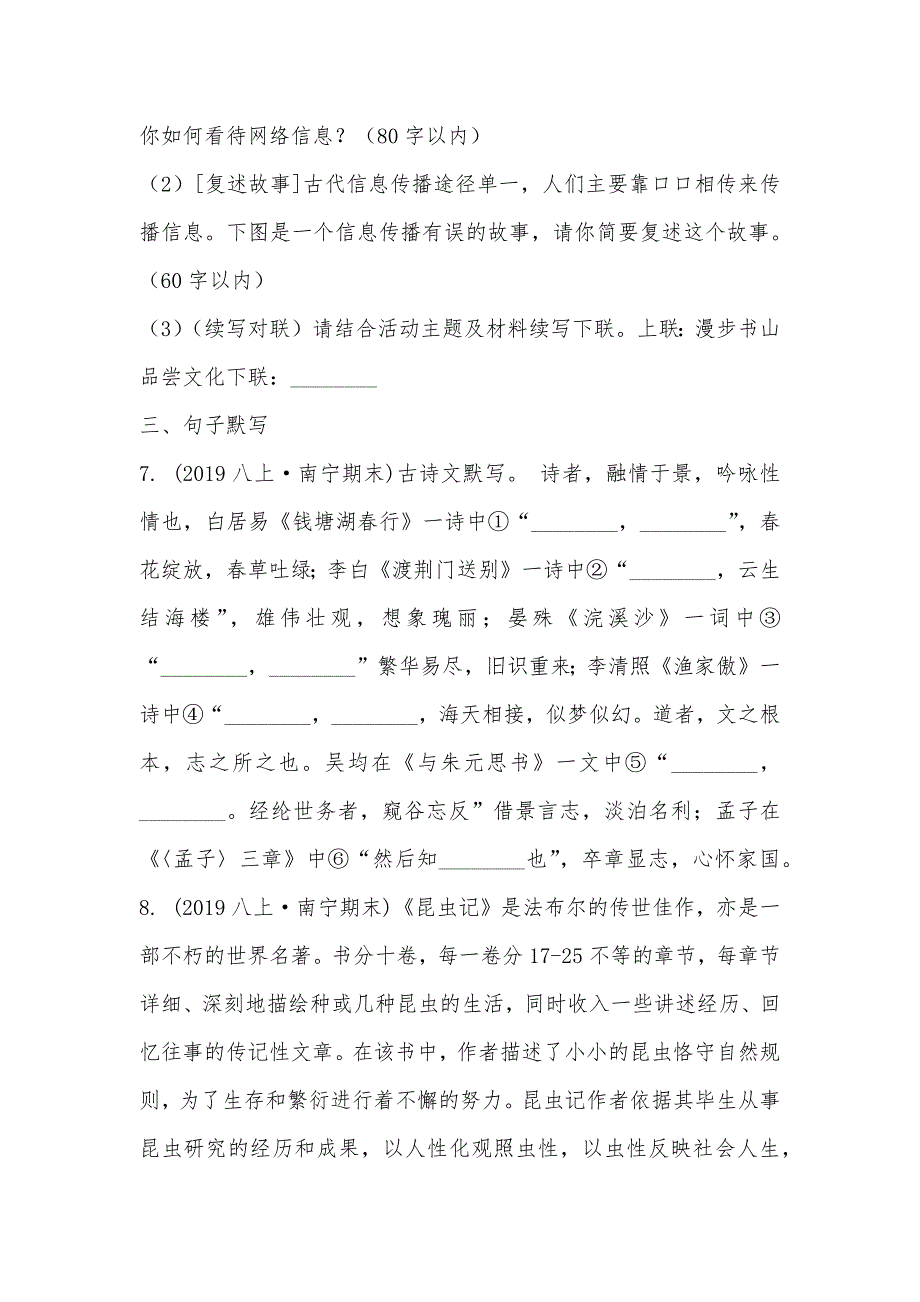 你如何看待网络信息？（80 字以内）
（2）[复述故事]古代信息传播途径单一，人们主要靠口口相传来传
播信息。下图是一个信息传播有误的故事，请你简要复述这个故事。
（60 字以内）
（3）（续写对联）请结合活动主题及材料续写下联。上联：漫步书山
品尝文化下联：________
三、句子默写
7. (2019 八上·南宁期末)古诗文默写。 诗者，融情于景，吟咏性
情也，白居易《钱塘湖春行》一诗中①“________，________”，春
花绽放，春草吐绿；李白《渡荆门送别》一诗中②“________，云生
结海楼”，雄伟壮观，想象瑰丽；晏殊《浣溪沙》一词中③
“________，________”繁华易尽，旧识重来；李清照《渔家傲》一
诗中④“________，________，海天相接，似梦似幻。道者，文之根
本，志之所之也。吴均在《与朱元思书》一文中⑤“________，
________。经纶世务者，窥谷忘反”借景言志，淡泊名利；孟子在
《〈孟子〉三章》中⑥“然后知________也”，卒章显志，心怀家国。
8. (2019 八上·南宁期末)《昆虫记》是法布尔的传世佳作，亦是一
部不朽的世界名著。书分十卷，每一卷分 17-25 不等的章节，每章节
详细、深刻地描绘种或几种昆虫的生活，同时收入一些讲述经历、回
忆往事的传记性文章。在该书中，作者描述了小小的昆虫恪守自然规
则，为了生存和繁衍进行着不懈的努力。昆虫记作者依据其毕生从事
昆虫研究的经历和成果，以人性化观照虫性，以虫性反映社会人生，